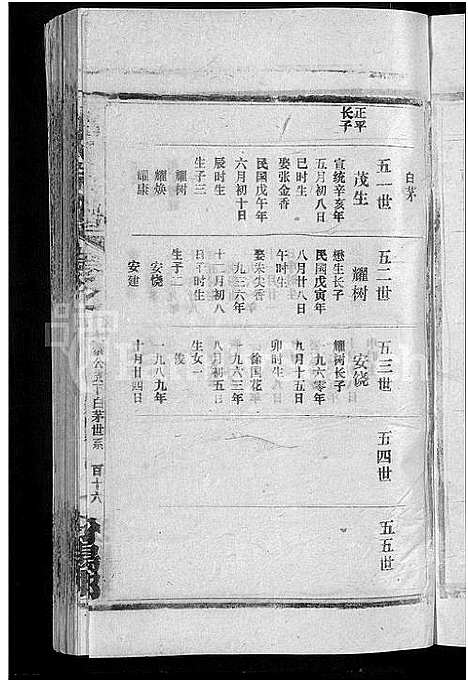 白茅
正平
长子
五一世
茂生
宣统辛亥年
五月初八日
巳时生
娶张金香
民国戊午年
六月初十日
辰时生
生子三
耀树
耀焕
耀康
五二世
耀树
懋生长子
民国戊寅年
八月廿八日
午时生
娶朱尖香
一九三六年
十二月初八
日子时生
生子二
安饶
安建
五三世
安饶
耀树长子
一九六零年
九月十五日
卯时生
娶徐国花
一九六三年
八月初五日
生女一
浅
一九八九年
十月廿四日
五四世
五五世
公美下白茅世系 百十六